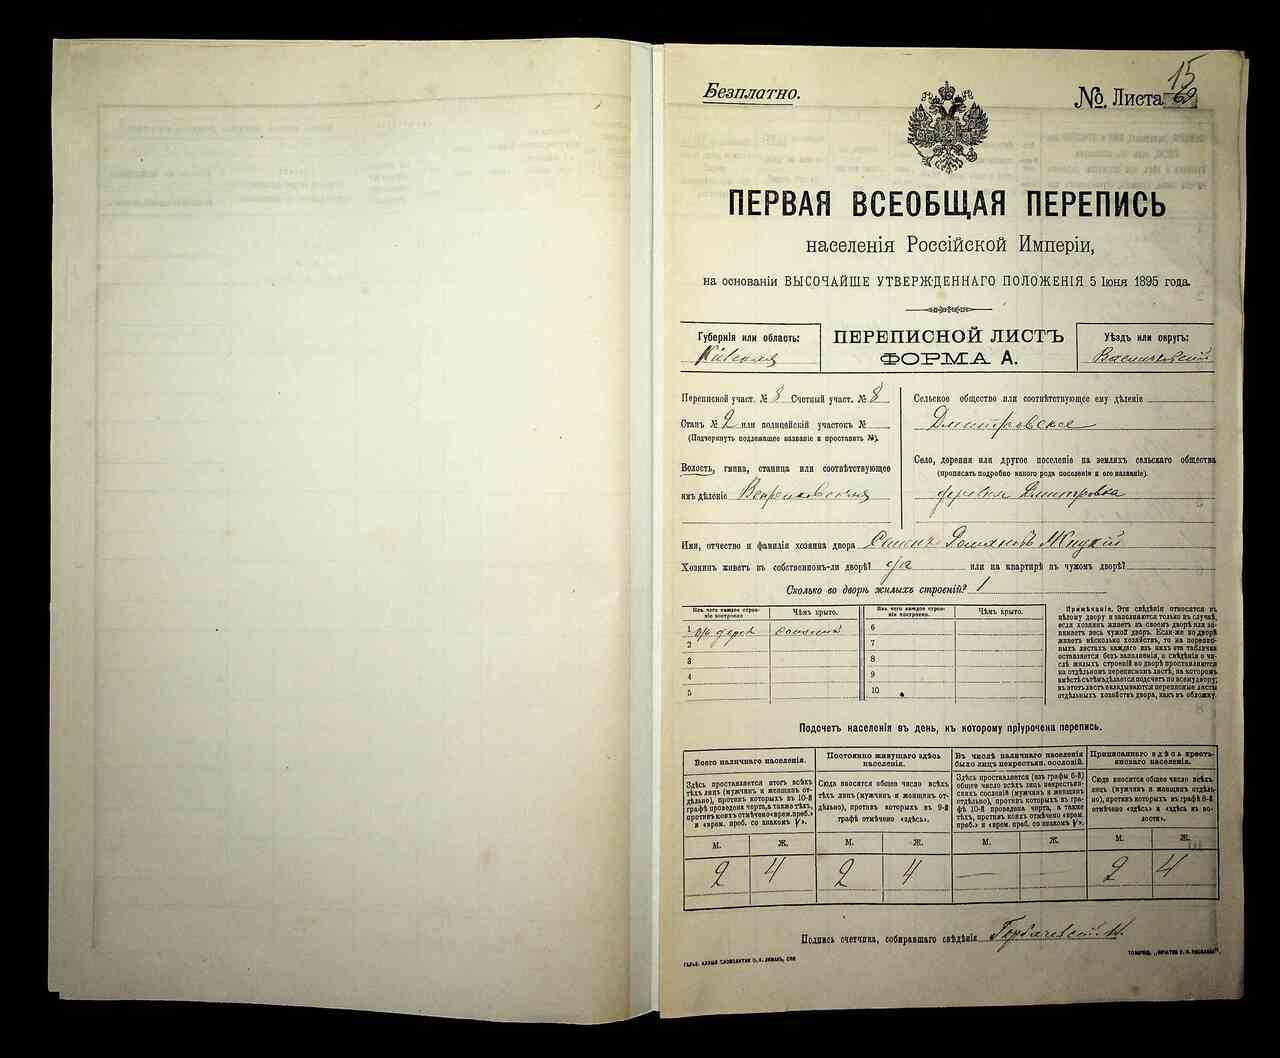 Безплатно.
№ Листа 15
69
ПЕРВАЯ ВСЕОБЩАЯ ПЕРЕПИСЬ
населенія Россійской Имперіи,
на основаніи ВЫСОЧАЙШЕ УТВЕРЖДЕННАГО ПОЛОЖЕНІЯ 5 Іюня 1895 года.
Губернія или область:
Кіевская
ПЕРЕПИСНОЙ ЛИСТЪ
ФОРМА А.
Уѣздъ или округъ:
Васильковскій
Переписной участ. № 8 Счетный участ. № 8
Станъ № 2 или полицейскій участокъ №
(Подчеркнуть подлежащее названіе и проставить №).
Волость, гмина, станица или соотвѣтствующее
имъ дѣленіе
Сельское общество или соотвѣтствующее ему дѣленіе
Дмитровское
Село, деревня или другое поселеніе на земляхъ сельскаго общества
(прописать подробно какого рода поселеніе и его названіе).
деревня Дмитровка
Имя, отчество и фамилія хозяина двора
Хозяинъ живетъ въ собственномъ-ли дворѣ? да или на квартирѣ въ чужомъ дворѣ?
Сколько во дворѣ жилыхъ строеній? 1
Изъ чего каждое строеніе построено
Чѣмъ крыто.
Изъ чего каждое строеніе построено.
Чѣмъ крыто.
1 соломой
2
3
4
5
6
7
8
9
10
Примѣчаніе. Эти свѣдѣнія относятся къ
цѣлому двору и заполняются только въ случаѣ,
если хозяинъ живетъ въ своемъ дворѣ или занимаетъ
весь чужой дворъ. Если-же во дворѣ
живетъ нѣсколько хозяйствъ, то на переписныхъ
листахъ каждаго изъ нихъ эта табличка
оставляется безъ заполненія, а свѣдѣнія о числѣ
жилыхъ строеній во дворѣ проставляются
на отдѣльномъ переписномъ листѣ, на которомъ
вмѣстѣ съ тѣмъ дѣлается подсчетъ по всему двору;
въ этотъ листъ вкладываются переписные листы
отдѣльныхъ хозяйствъ двора, какъ въ обложку.
Подсчетъ населенія въ день, къ которому пріурочена перепись.
Всего наличнаго населенія.
Здѣсь проставляется итогъ всѣхъ
тѣхъ лицъ (мужчинъ и женщинъ отдѣльно),
противъ которыхъ въ 10-й
графѣ проведена черта, а также тѣхъ,
противъ коихъ отмѣчено «врем. преб.»
и «врем. преб. со знакомъ V».
Постоянно живущаго здѣсь
населенія.
Сюда вносится общее число всѣхъ
тѣхъ лицъ (мужчинъ и женщинъ отдѣльно),
противъ которыхъ въ 9-й
графѣ отмѣчено «здѣсь».
Въ числѣ наличнаго населенія
было лицъ некрестьян. сословій.
Здѣсь проставляется (изъ графы 6-й)
общее число всѣхъ лицъ некрестьянскихъ
сословій (мужчинъ и женщинъ
отдѣльно), противъ которыхъ въ графѣ
10-й проведена черта, а также
тѣхъ, противъ коихъ отмѣчено «врем.
преб.» и «врем. преб. со знакомъ V».
Приписаннаго здѣсь крестьянскаго
населенія.
Сюда вносится общее число всѣхъ
лицъ (мужчинъ и женщинъ отдѣльно),
противъ которыхъ въ графѣ 8-й
отмѣчено «здѣсь» и «здѣсь въ волости».
М. Ж. М. Ж. М. Ж. М. Ж.
2 4 2 4 — — 2 4
Подпись счетчика, собиравшаго свѣдѣнія